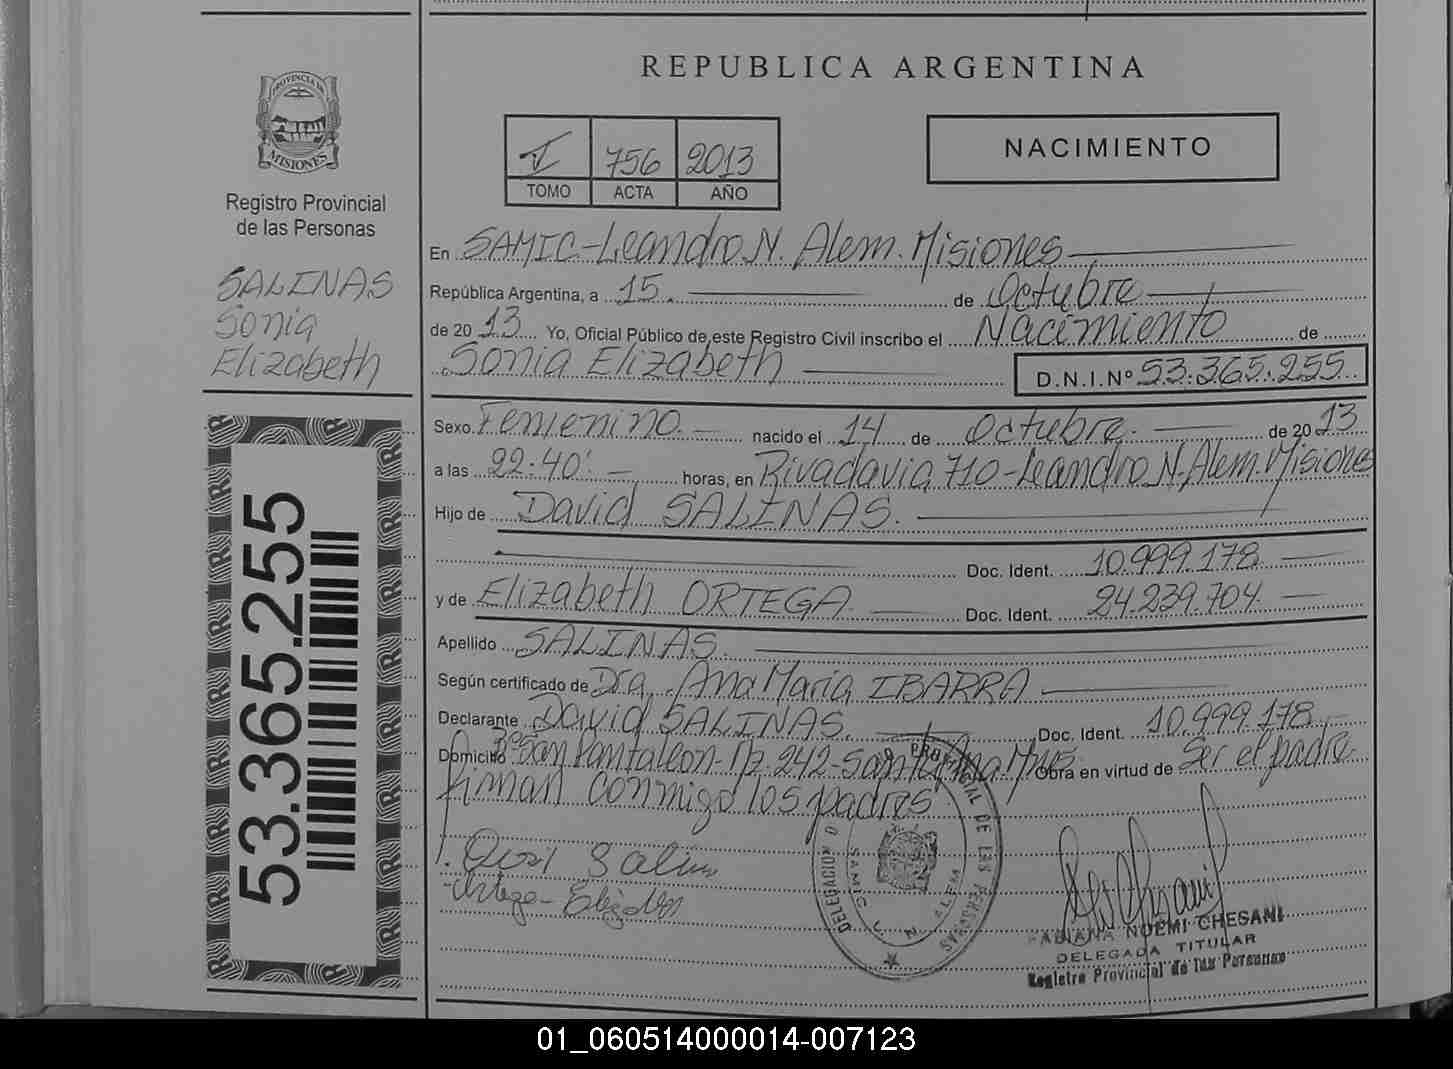 REPUBLICA ARGENTINA
PROVINCIA DE
MISIONES
Registro Provincial
de las Personas
SALINAS
Sonia
Elizabeth
53.365.255
I 756 2013
TOMO ACTA AÑO
NACIMIENTO
En SAMIC-Leandro N. Alem. Misiones
República Argentina, a 15. de Octubre
de 20 13 Yo, Oficial Público de este Registro Civil inscribo el Nacimiento de
Sonia Elizabeth D.N.I.Nº 53.365.255
Sexo Femenino. nacido el 14 de Octubre. de 20 13
a las 22:40' horas, en Rivadavia 710-Leandro N. Alem. Misiones
Hijo de David SALINAS.
Doc. Ident. 10.999.178
y de Elizabeth ORTEGA Doc. Ident. 24.239.704
Apellido SALINAS.
Según certificado de Dra. Ana Maria IBARRA
Declarante David SALINAS. Doc. Ident. 10.999.178
Domicilio Bº San Pantaleon-Mz.242-Santa Ana Mnes Obra en virtud de Ser el padre
firman conmigo los padres
Salin
Ortega
DELEGACION REGISTRO PROVINCIAL DE LAS PERSONAS
SAMIC L. N. ALEM
FABIANA NOEMI CHESANI
DELEGADA TITULAR
Registro Provincial de las Personas
01_060514000014-007123